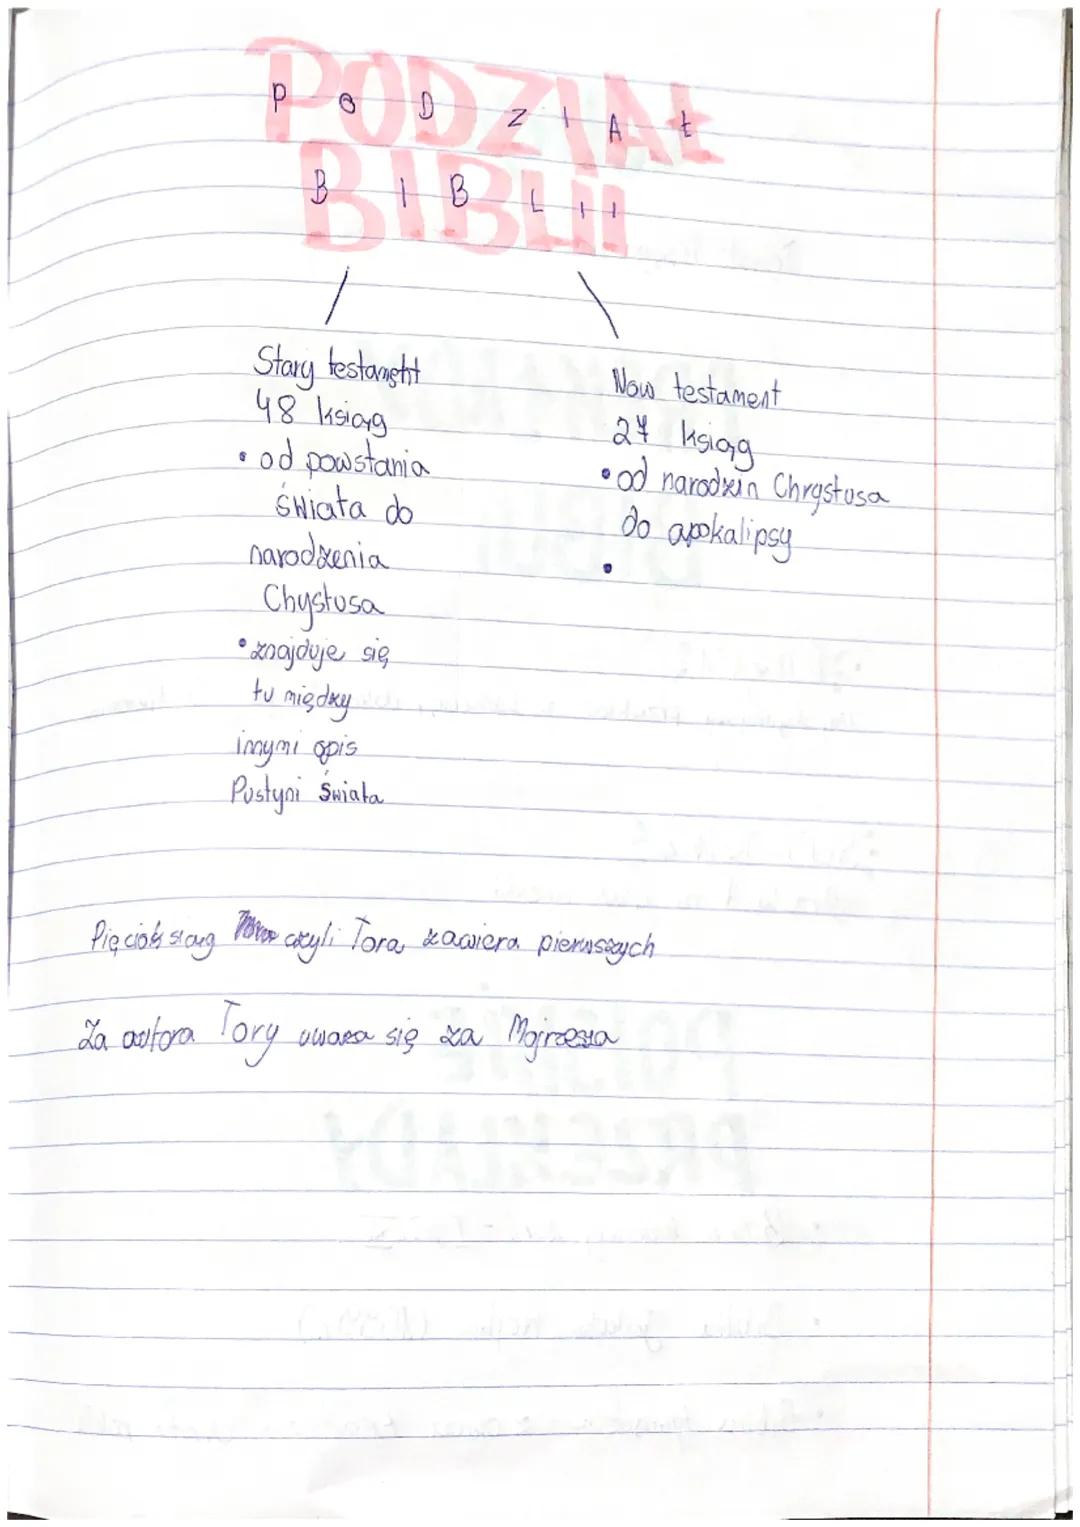 PODZIAŁ
BIBLII
Stary testament
48 ksiąg
• od powstania
świata do
narodzenia
Chystusa
• znajduje się
tu między
innymi opis
Pustyni świata
Now testament
27 ksiąg
• od narodzin Chrystusa
do apokalipsy
•
Pięcioksiąg czyli Tora zawiera pierwszych
Za autora Tory uwaza się za Mojrzesza